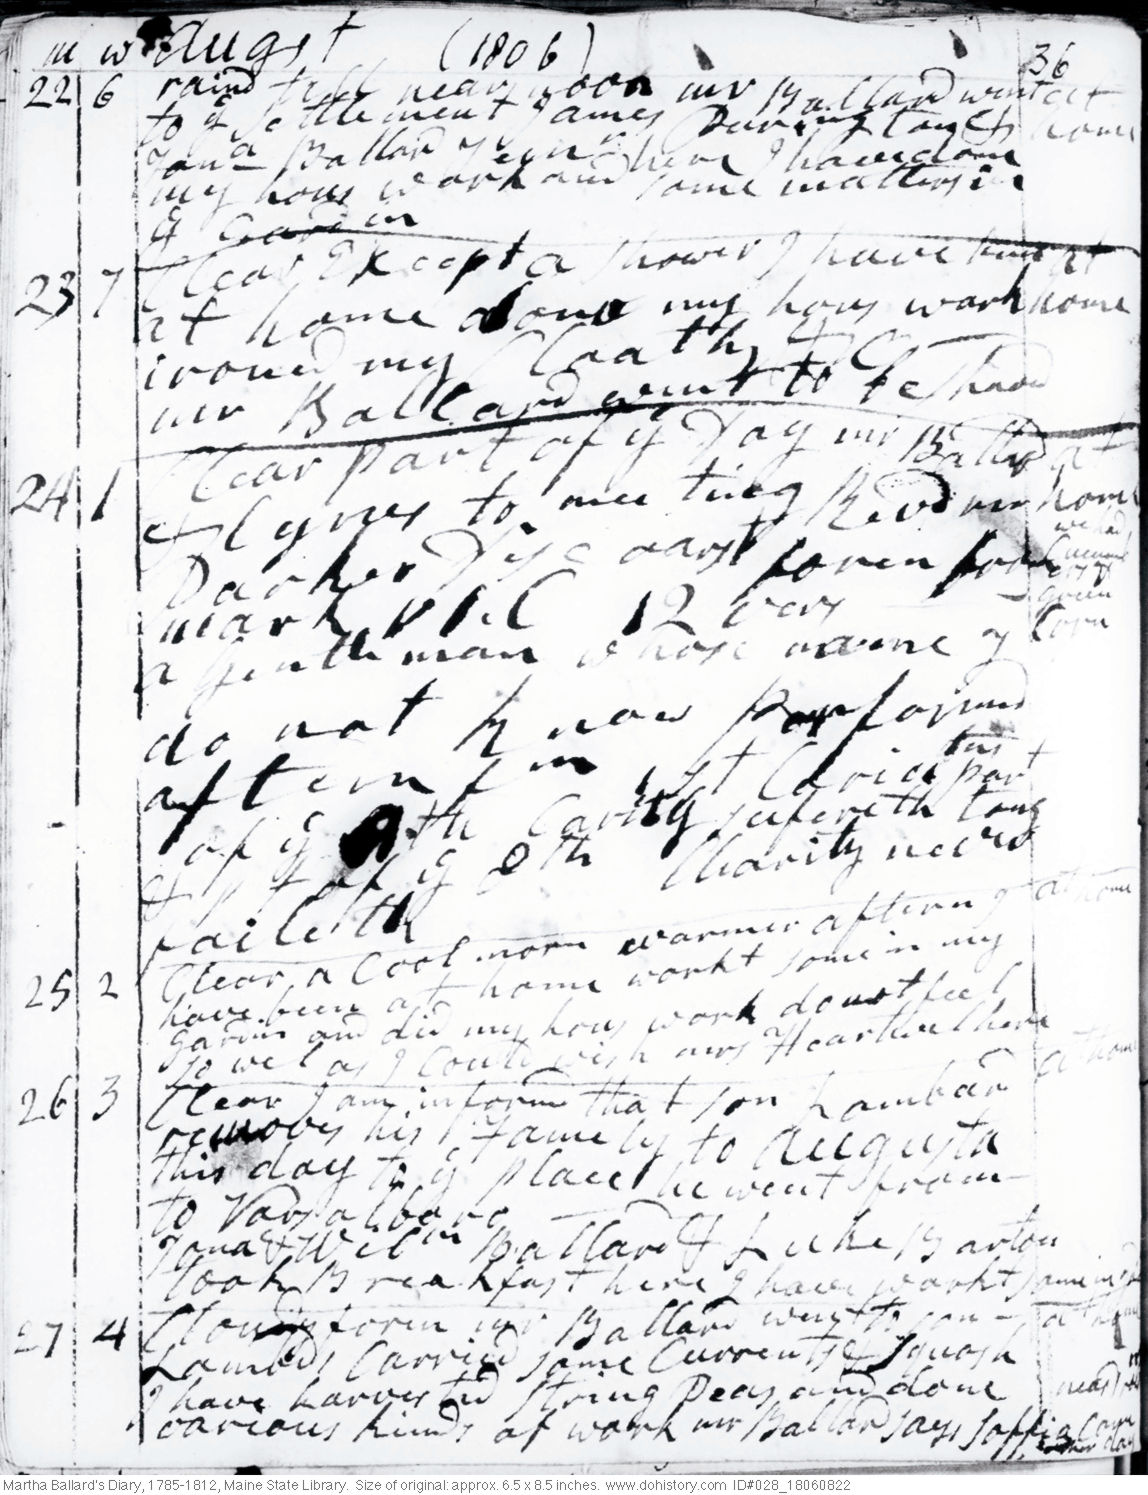 m w August (1806)
36
22 6 raind till near noon mr Ballard went at
to ye settlement James Purington & home
Jona Ballard Junr here I have done
my hous work and some matters in
ye Gardin
23 7 Clear Except a shower I have been at
at home done my hous work home
ironed my Cloaths &C
mr Ballard went to be Shavd
24 1 Clear part of ye Day mr Ballard at
& Cyrus to meeting Revd mr home
we had
Parker Discoarst foren from Cucumb
ers &
mark 1st C 12 vers green
a gentleman whose name I Corn
do not know performd
aftern fm 1st Corinths
part
of ye 4th Carity sufereth long
& pt of ye 8th Charity never
faileth
25 2 Clear a Cool morn warmer aftern I at home
have been at home workt some in my
gardin and did my hous work do not feel
so wel as I Could wish mrs Heartwel here
26 3 Clear I am informd that son Lambard at home
removes his Famely to Augusta
this day to ye place he went from
to Vassalboro
Jona & Wilm Ballard & Luke Barton
took Breakfast here I have workt some in
27 4 Cloudy foren mr Ballard went to son at home
Lambds Carried some Currents & Squash
I have harvested string Peas and done
various kinds of work mr Ballard says Soffia Came
Martha Ballard's Diary, 1785-1812, Maine State Library. Size of original: approx. 6.5 x 8.5 inches. www.dohistory.com ID#028_18060822